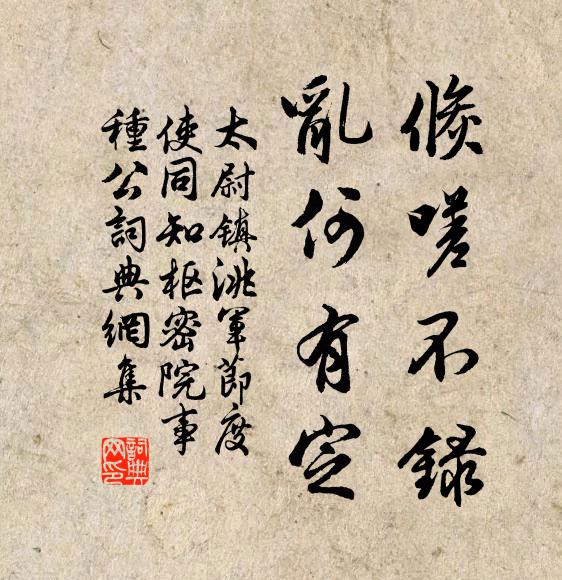 倏嗟不録
亂何有定
太尉鎮洮軍節度
使同知枢密院事
種公詞典網集
詞典網印